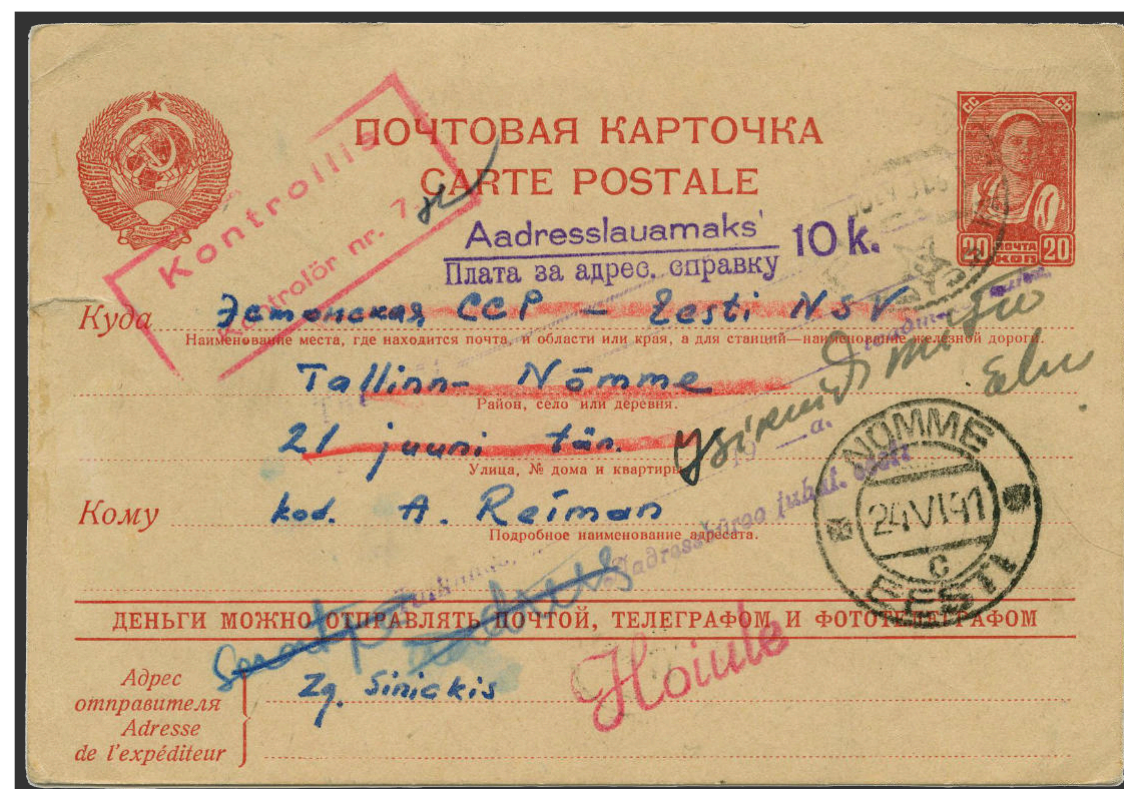 ПОЧТОВАЯ КАРТОЧКА
CARTE POSTALE
СС СР
20 ПОЧТА КОП 20
Kontrollis
Kontrolör nr. 7
Aadresslauamaks' 10 k.
Плата за адрес. справку
Куда Эстонская ССР – Eesti NSV
Наименование места, где находится почта, и области или края, а для станций—наименование железной дороги.
Tallinn- Nõmme
Район, село или деревня.
21 juuni tän.
19 — a.
Улица, № дома и квартиры
Кому kod. A. Reiman
Подробное наименование адресата.
Aadressbüroo juhat. eest
NÕMME
24 VI 41
C
EESTI
ДЕНЬГИ МОЖНО ОТПРАВЛЯТЬ ПОЧТОЙ, ТЕЛЕГРАФОМ И ФОТОТЕЛЕГРАФОМ
Hoiule
Адрес отправителя
Adresse de l'expéditeur
Zg. Sinickis